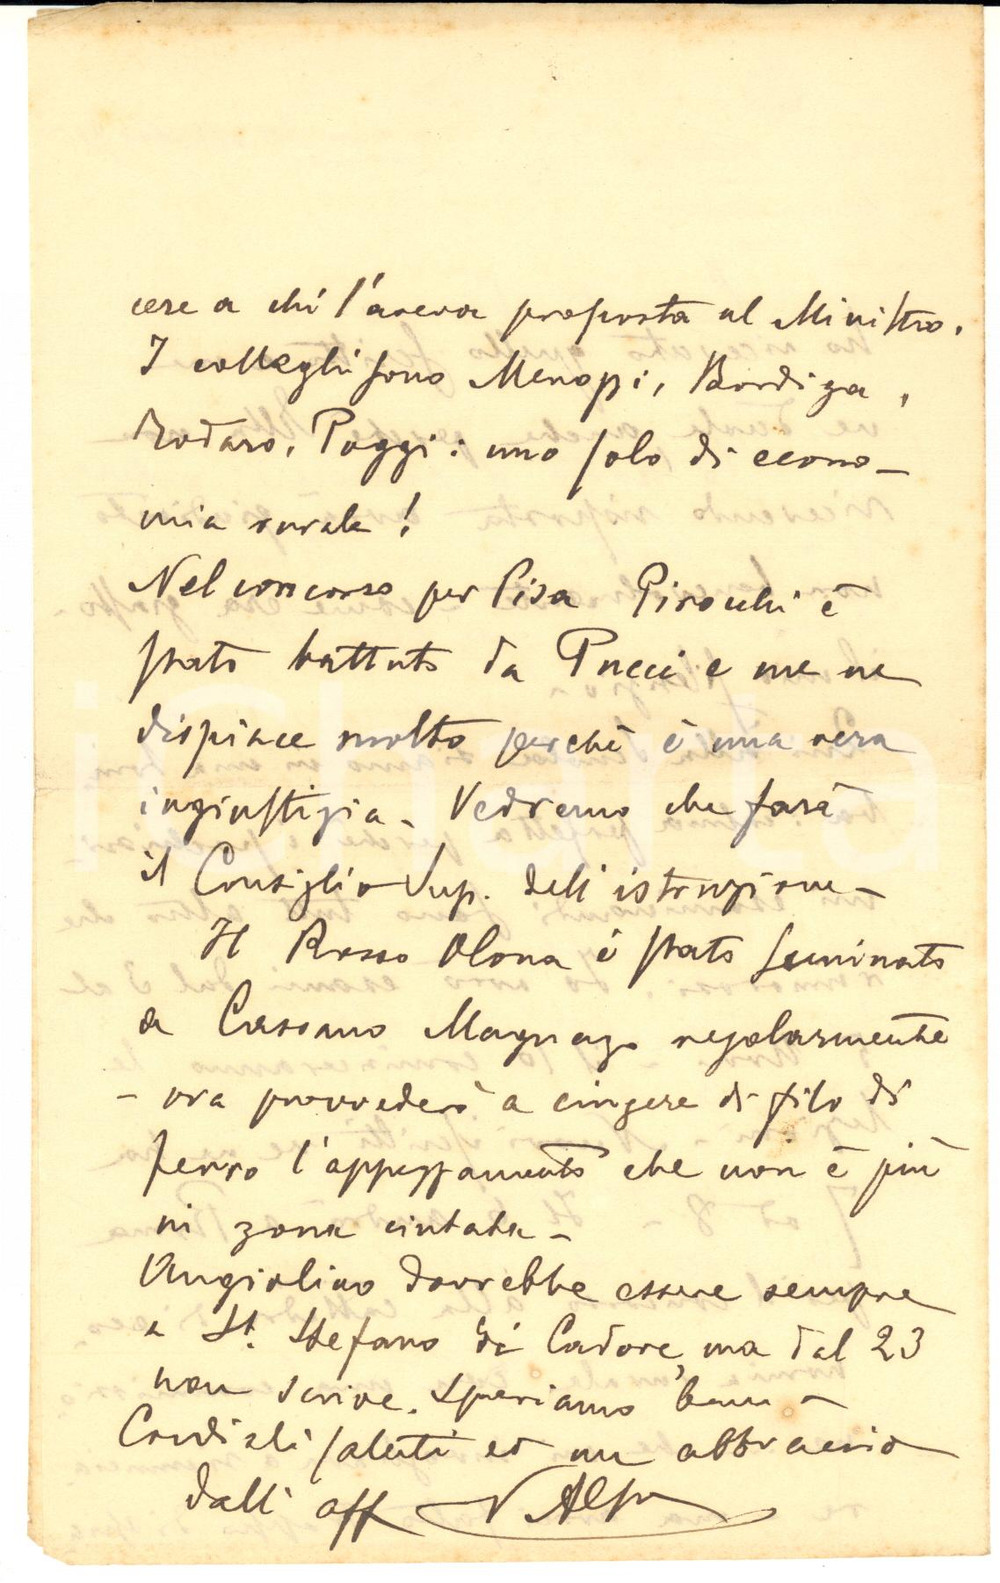 cere a chi l'aveva proposta al Ministro.
I colleghi sono Menozzi, Bordiga,
Todaro, Poggi: uno solo di econo-
mia rurale!
Nel concorso per Pisa Pirocchi è
stato battuto da Pucci e me ne
dispiace molto perchè è una vera
ingiustizia - Vedremo che farà
il Consiglio Sup. dell'istruzione -
Il Rosso Olona è stato seminato
a Cassano Magnago regolarmente
- ora provvederò a cingere di filo di
ferro l'appezzamento che non è più
in zona cintata -
Angiolino dovrebbe essere sempre
a St. Stefano di Cadore, ma dal 23
non scrive. Speriamo bene -
Cordiali saluti ed un abbraccio
dall' aff V Alpe